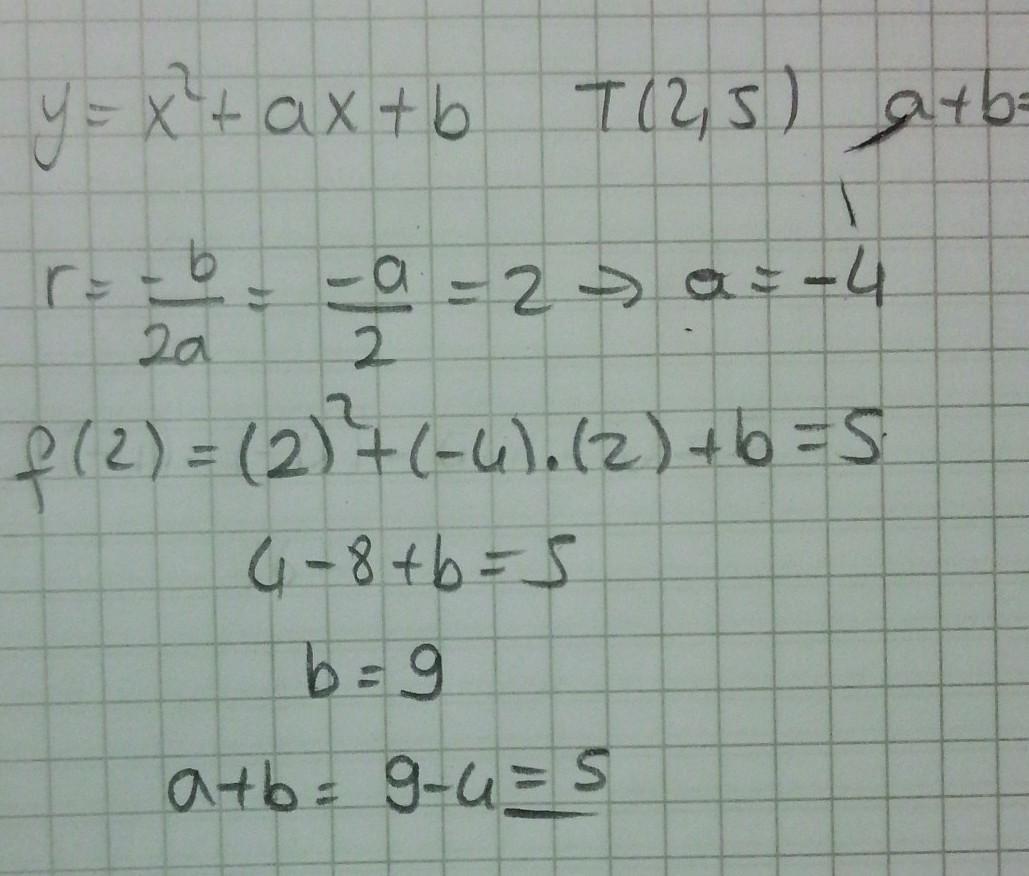 y = x² + ax + b T(2,5) a+b=
r = -b/2a = -a/2 = 2 → a = -4
f(2) = (2)² + (-4).(2) + b = 5
4 - 8 + b = 5
b = 9
a+b = 9-4 = 5